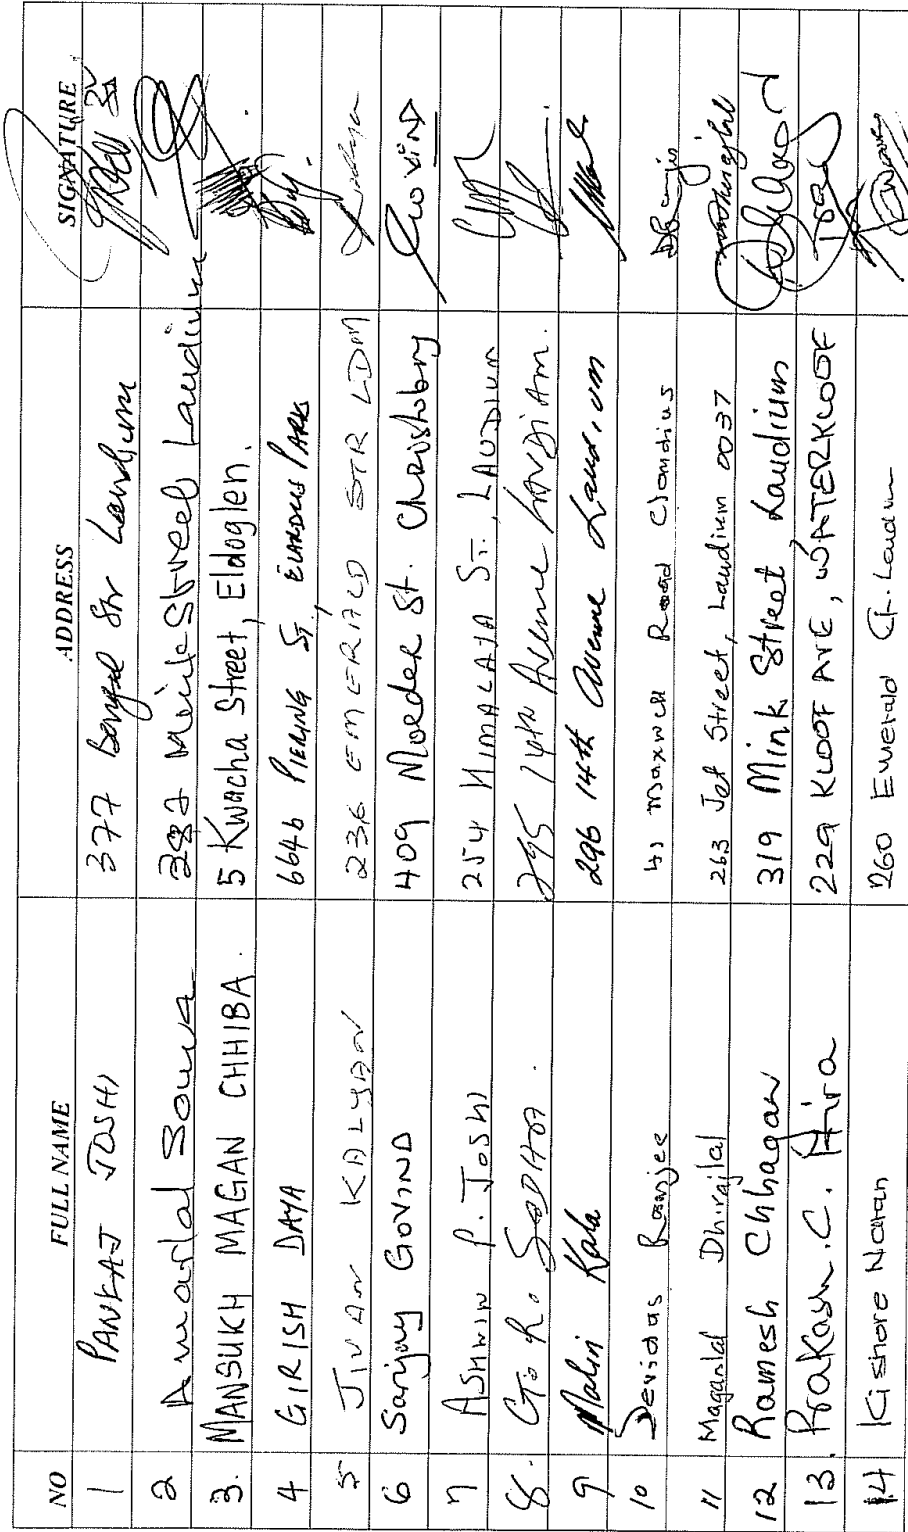 NO FULL NAME ADDRESS SIGNATURE
1 PANKAJ JOSHI 377 Bengal Str Laudium
2 Amarlal Soma 382 Mink Street Laudium
3. MANSUKH MAGAN CHHIBA. 5 Kwacha Street, Eldoglen.
4 GIRISH DAYA 6646 PIERING ST, ELARDUS PARK
5 JIVAN KALYAN 236 EMERALD STR LDM
6 Sanjay GOVIND 409 Moeder St. Christobury GOVIND
7 ASHWIN P. JOSHI 254 HIMALAYA ST. LAUDIUM
8. G. R. 295 14th Avenue
9 Nalin Kala 296 14th Avenue Laudium
10 Devidas Ramjee 43 Maxwell Road Claudius
11 Maganlal Dhirajlal 263 Jet Street, Laudium 0037
12 Ramesh Chhagan 319 Mink Street Laudium
13. Prakash. C. Hira 229 KLOOF AVE, WATERKLOOF
14 Kishore Naran 260 Emerald Laudium